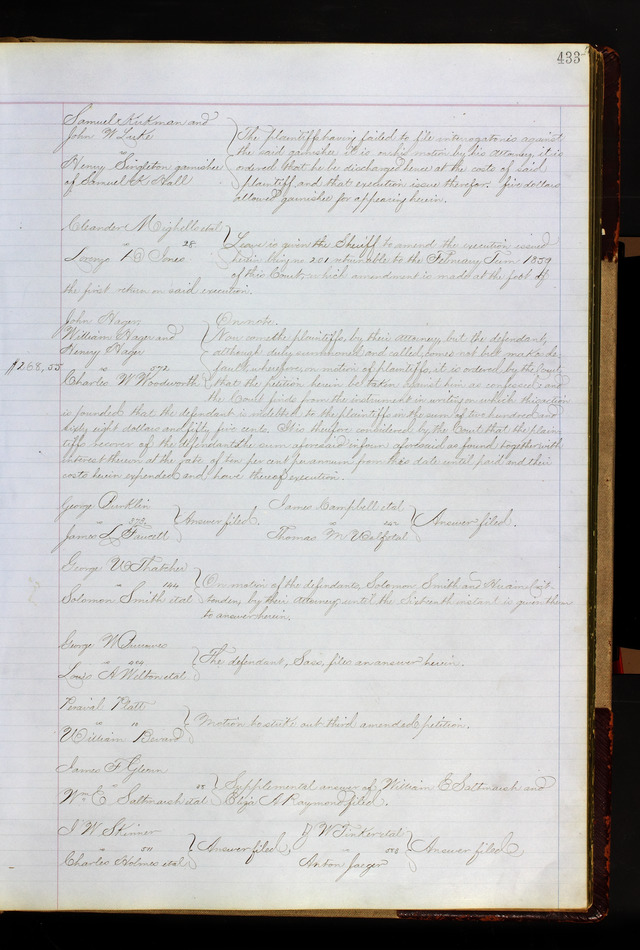 433
Samuel Kirkman and
John W Luke
vs
Henry Singleton garnishee
of Samuel K Hall
The plaintiffs having failed to file interrogatories against
the said garnishee it is on his motion by his Attorney, it is
ordered that he be discharged hence at the costs of said
plaintiff and that execution issue therefor. five dollars
allowed garnishee for appearing herein.
Oleander Mighells et al
vs 28
Lorenzo P
Leave is given the Sheriff to amend the execution issued
herein being no 201, returnable to the February Term 1859
of this Court, which amendment is made at the foot of
the first return on said execution.
John Hager
William Hager and
Henry Hager
$268,55
vs 572
Charles W Woodworth
On note.
Now come the plaintiffs, by their Attorney, but the defendant,
although duly summoned and called, comes not but makes de
fault, wherefore, on motion of plaintiffs, it is ordered by the Court
that the petition herein be taken against him as confessed, and
the Court finds from the instrument in writing on which this action
is founded that the defendant is indebted to the plaintiffs in the sum of two hundred and
sixty eight dollars and fifty five cents. It is therefore considered by the Court that the plain
tiffs recover of the defendant the sum aforesaid in form aforesaid as found, together with
interest thereon at the rate of ten per cent per annum from this date until paid and their
costs herein expended and have thereof execution.
George
vs
James L Fawcett
Answer filed.
James Campbell et al
vs
Thomas M et al
Answer filed.
George W Thatcher
vs 144
Solomon Smith et al
On motion of the defendants, Solomon Smith and Hiram
by their Attorney, until the Sixteenth instant is given them
to answer herein.
George W
vs
Louis A Welton et al
The defendant, Sass, files an answer herein.
Perceval Platt
vs "
William Bevard
Motion to strike out third amended petition.
James F Glenn
vs
Wm. E Saltmarsh et al
Supplemental answer of William E Saltmarsh and
Eliza A Raymond filed.
J W Skinner
vs 511
Charles Holmes et al
Answer filed,
G W Tinker et al
vs 508
Anton Jaeger
Answer filed,